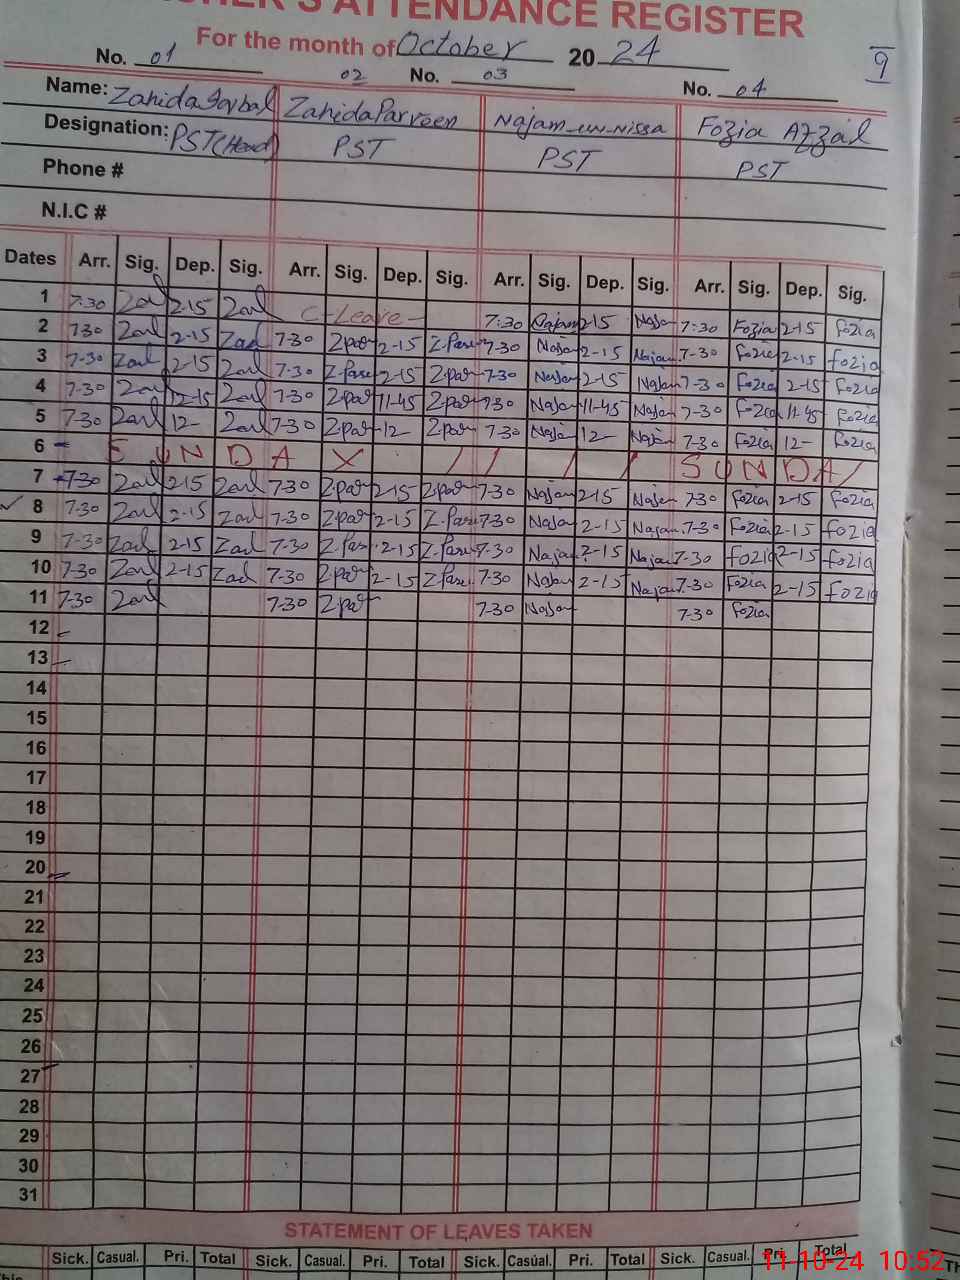 TEACHER'S ATTENDANCE REGISTER
For the month of October 20 24
9
No. 01 02 No. 03 No. 04
Name: Zahida Iqbal Zahida Parveen Najam-un-Nissa Fozia Afzal
Designation: PST(Head) PST PST PST
Phone #
N.I.C #
Dates Arr. Sig. Dep. Sig. Arr. Sig. Dep. Sig. Arr. Sig. Dep. Sig. Arr. Sig. Dep. Sig.
1 7-30 2-15 C-Leave- 7:30 Najam 2-15 Najam 7:30 Fozia 2-15 Fozia
2 7-30 2-15 7-30 Z.par 2-15 Z.Parv 7-30 Najam 2-15 Najam 7-30 Fozia 2-15 Fozia
3 7-30 2-15 7-30 Z.Parv 2-15 Z.par 7-30 Najam 2-15 Najam 7-30 Fozia 2-15 Fozia
4 7-30 7-30 Z.par 11-45 Z.par 7-30 Najam 11-45 Najam 7-30 Fozia 11-45 Fozia
5 7-30 12- 7-30 Z.par 12- Z.par 7-30 Najam 12- Najam 7-30 Fozia 12- Fozia
6 S U N D A Y / / / / S U N D A Y
7 7-30 2-15 7-30 Z.par 2-15 Z.par 7-30 Najam 2-15 Najam 7-30 Fozia 2-15 Fozia
8 7-30 2-15 7-30 Z.par 2-15 Z.Parv 7-30 Najam 2-15 Najam 7-30 Fozia 2-15 Fozia
9 7-30 2-15 7-30 Z.Parv 2-15 Z.Parv 7-30 Najam 2-15 Najam 7-30 Fozia 2-15 Fozia
10 7-30 2-15 7-30 Z.par 2-15 Z.Parv 7-30 Najam 2-15 Najam 7-30 Fozia 2-15 Fozia
11 7-30 7-30 Z.par 7-30 Najam 7-30 Fozia
12
13
14
15
16
17
18
19
20
21
22
23
24
25
26
27
28
29
30
31
STATEMENT OF LEAVES TAKEN
Sick. Casual. Pri. Total Sick. Casual. Pri. Total Sick. Casual. Pri. Total Sick. Casual. Pri. Total
11-10-24 10:52